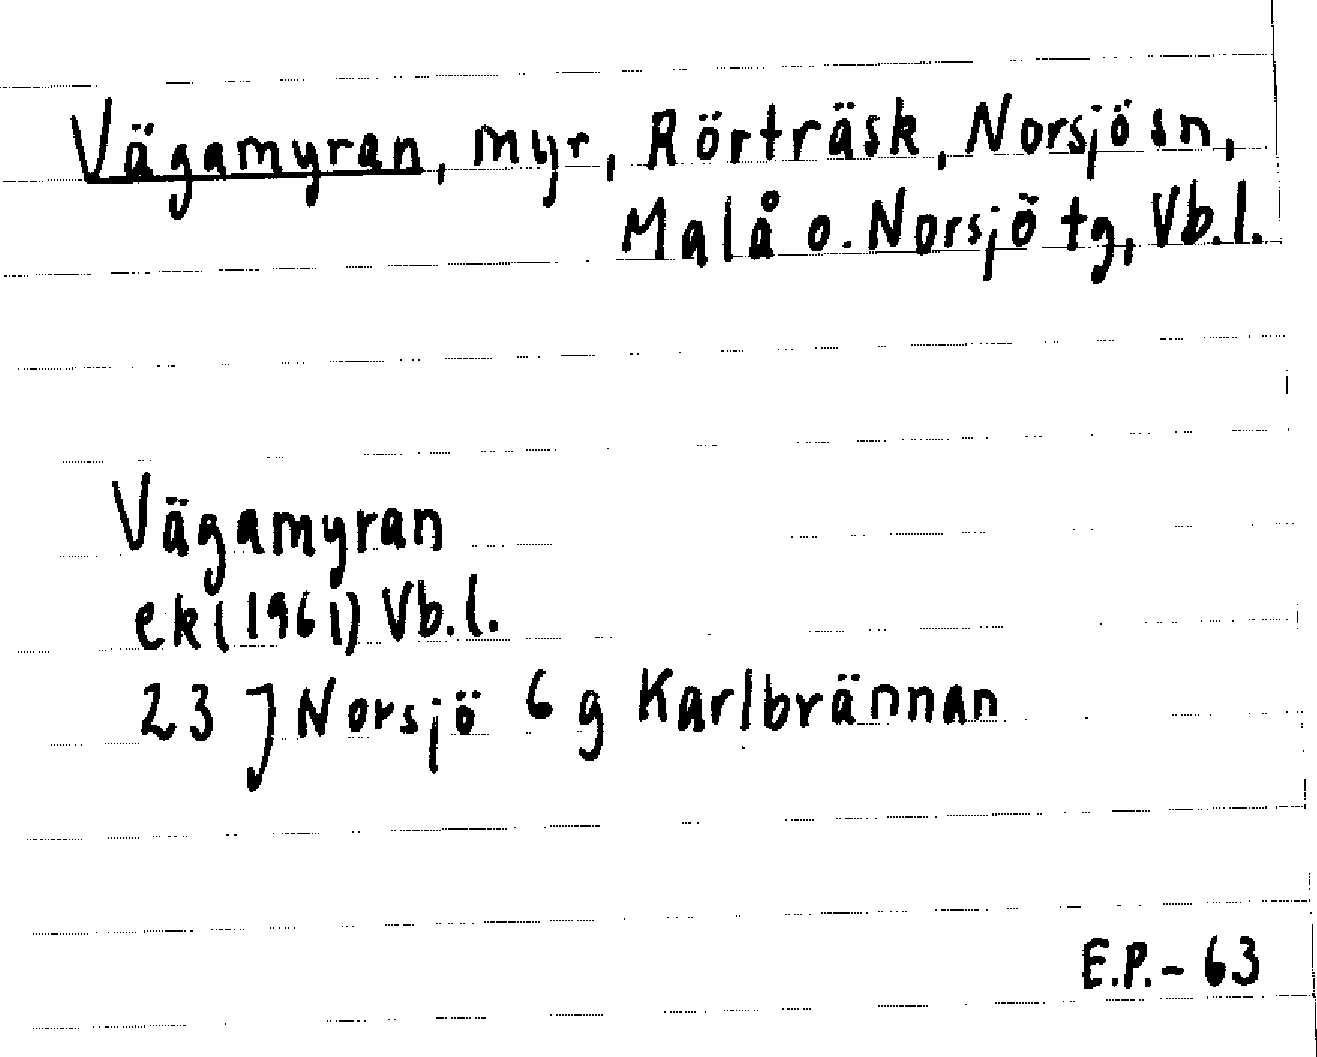 Vägamyran, myr, Rörträsk, Norsjö sn,
Malå o. Norsjö tg, Vb.l.
Vägamyran
ek (1961) Vb.l.
23 J Norsjö 6 g Karlbrännan
E.P.-63